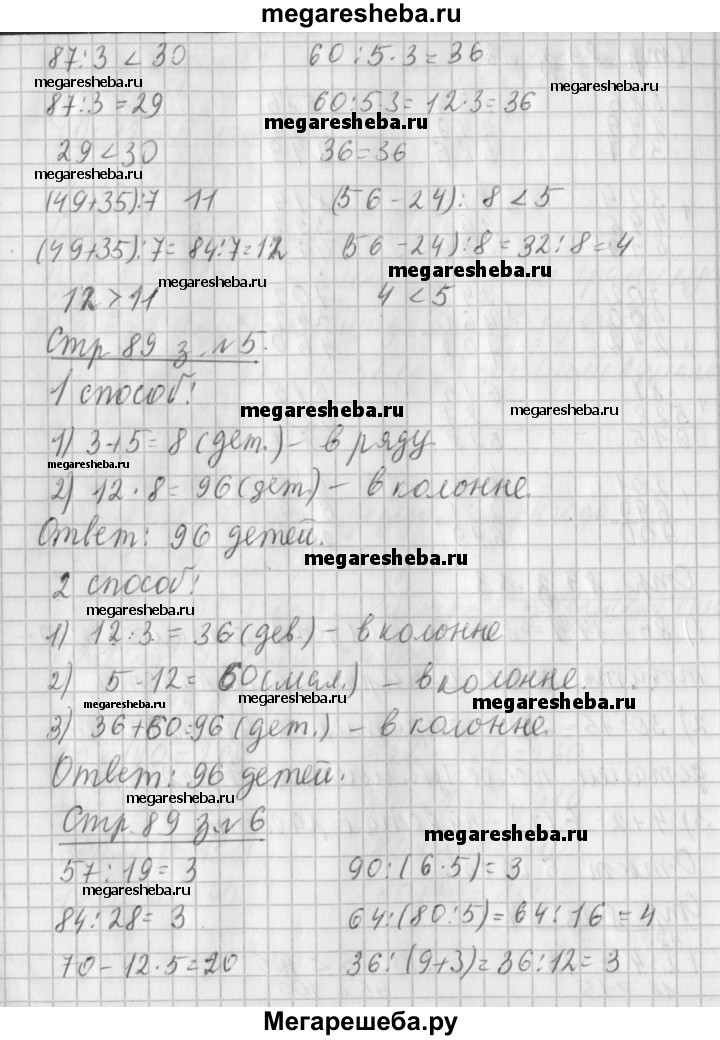 megaresheba.ru
87:3 < 30 60:5·3 = 36
megaresheba.ru
87:3 = 29 60:5·3 = 12·3 = 36
megaresheba.ru
29 < 30 36 = 36
megaresheba.ru
(49+35):7 11 (56-24): 8 < 5
(49+35):7 = 84:7=12 (56-24):8 = 32:8 = 4
megaresheba.ru
megaresheba.ru
12 > 11 4 < 5
Стр 89 з. №5.
1 способ:
megaresheba.ru
megaresheba.ru
1) 3+5 = 8 (дет.) - в ряду.
megaresheba.ru
2) 12 · 8 = 96 (дет) - в колонне.
Ответ: 96 детей.
megaresheba.ru
2 способ:
megaresheba.ru
1) 12·3 = 36 (дев.) - в колонне
2) 5·12 = 60 (мал.) - в колонне.
megaresheba.ru
megaresheba.ru
megaresheba.ru
3) 36+60=96 (дет.) - в колонне.
Ответ: 96 детей.
megaresheba.ru
Стр 89 з№6
megaresheba.ru
57:19 = 3 90:(6·5) = 3
megaresheba.ru
84:28 = 3 64:(80:5) = 64:16 = 4
70-12·5 = 20 36:(9+3) = 36:12 = 3
Мегарешеба.ру